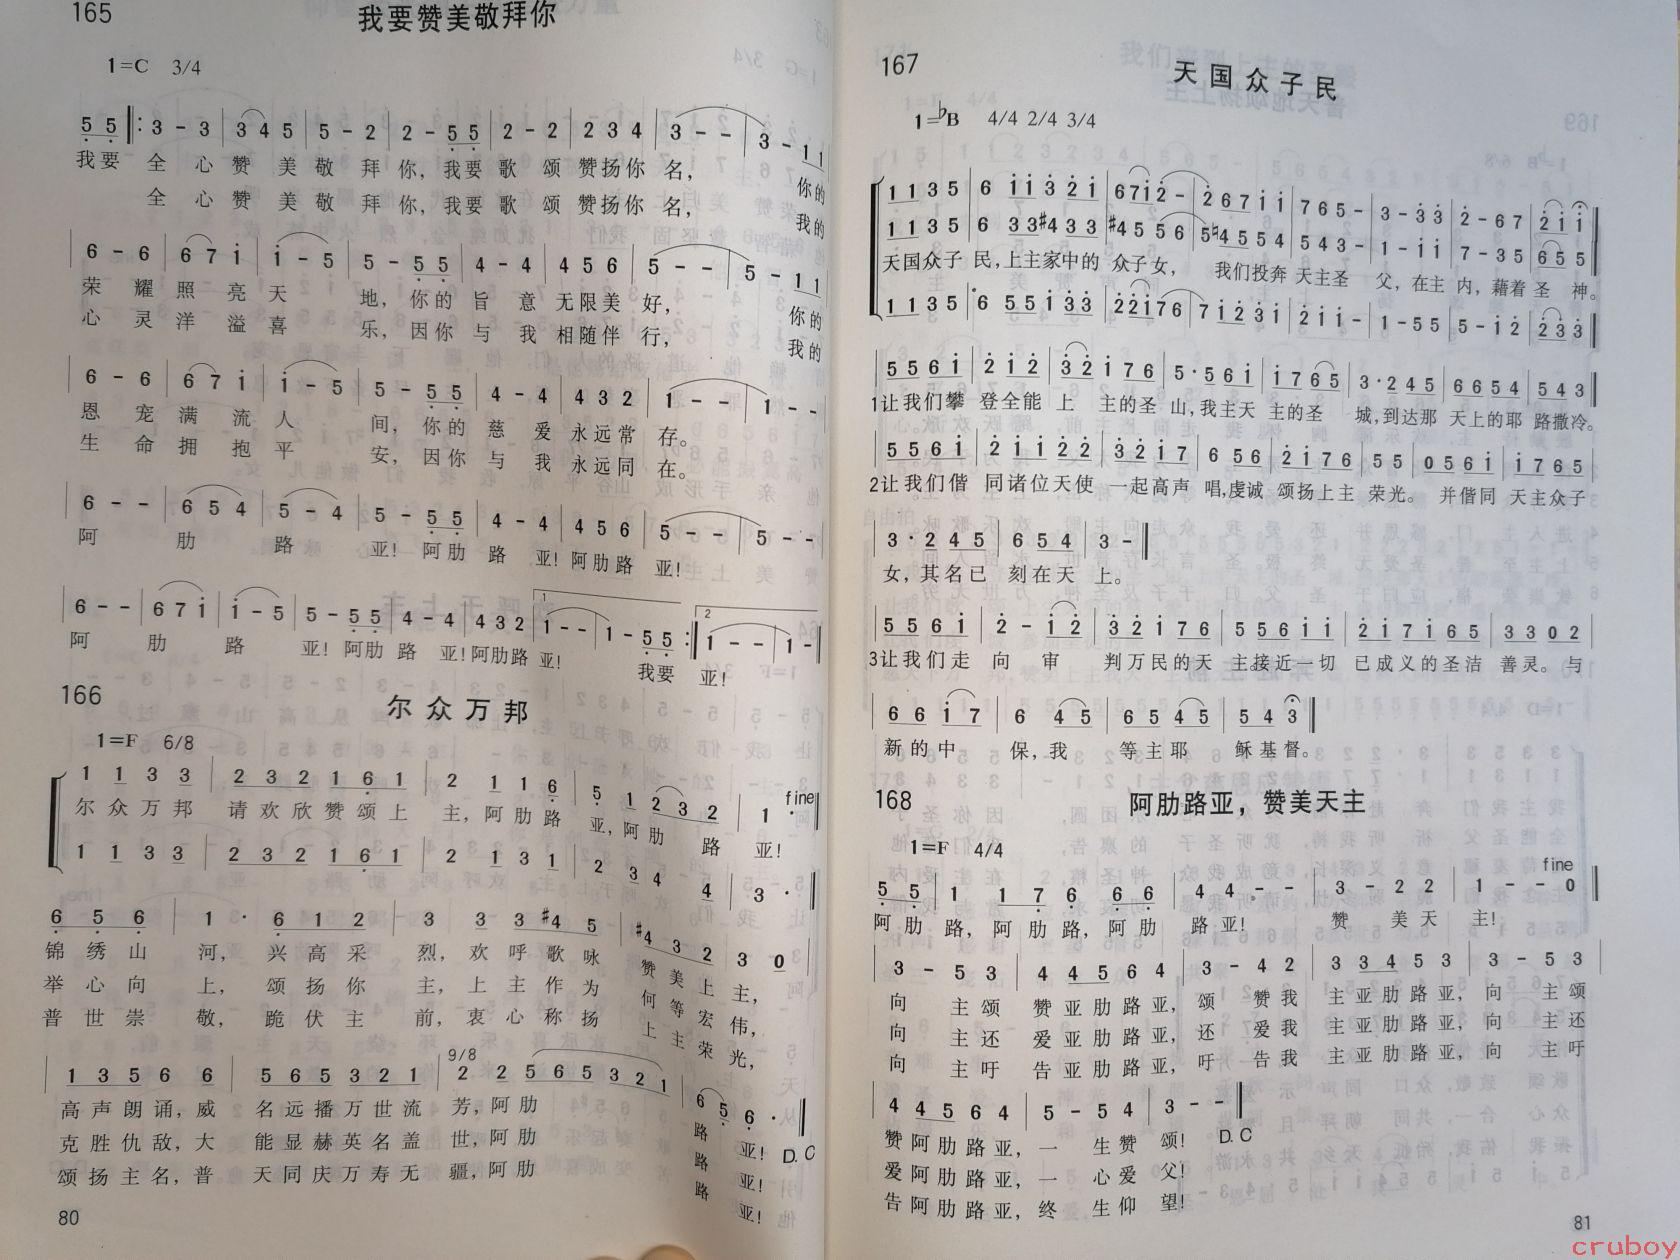 165
我要赞美敬拜你
1=C 3/4
5 5 ‖: 3 - 3 | 3 4 5 | 5 - 2 | 2 - 5 5 | 2 - 2 | 2 3 4 | 3 - - | 3 - 1 1
我要 全 心 赞 美 敬 拜 你, 我要 歌 颂 赞扬你 名, 你的
全 心 赞 美 敬 拜 你, 我要 歌 颂 赞扬你 名, 我的
6 - 6 | 6 7 i | i - 5 | 5 - 5 5 | 4 - 4 | 4 5 6 | 5 - - | 5 - 1 1
荣 耀 照 亮 天 地, 你的 旨 意 无限美 好, 你的
心 灵 洋 溢 喜 乐, 因你 与 我 相随伴 行, 我的
6 - 6 | 6 7 i | i - 5 | 5 - 5 5 | 4 - 4 | 4 3 2 | 1 - - | 1 - -
恩 宠 满 流 人 间, 你的 慈 爱 永远常 存。
生 命 拥 抱 平 安, 因你 与 我 永远同 在。
6 - - | 6 5 4 | 5 - 4 | 5 - 5 5 | 4 - 4 | 4 5 6 | 5 - - | 5 - -
阿 肋 路 亚! 阿肋 路 亚! 阿肋路 亚!
6 - - | 6 7 i | i - 5 | 5 - 5 5 | 4 - 4 | 4 3 2 | 1 1 - - | 1 - 5 5 :‖ 2 1 - - | 1 - ‖
阿 肋 路 亚! 阿肋 路 亚! 阿肋路 亚! 我要 亚!
166
尔众万邦
1=F 6/8
1 1 3 3 | 2 3 2 1 6 1 | 2 1 1 6 | 5 1 2 3 2 | 1 · fine ‖
尔 众 万 邦 请 欢 欣 赞 颂 上 主, 阿 肋 路 亚, 阿 肋 路 亚!
1 1 3 3 | 2 3 2 1 6 1 | 2 1 3 1 | 2 3 4 4 | 3 · ‖
6 5 6 | 1 · 6 1 2 | 3 3 3 #4 5 | #4 3 2 3 0
锦 绣 山 河, 兴 高 采 烈, 欢 呼 歌 咏 赞 美 上 主,
举 心 向 上, 颂 扬 你 主, 上 主 作 为 何 等 宏 伟,
普 世 崇 敬, 跪 伏 主 前, 衷 心 称 扬 上 主 荣 光,
1 3 5 6 6 | 5 6 5 3 2 1 | 9/8 2 2 5 6 5 3 2 1 | 6 5 6 · ‖
高 声 朗 诵, 威 名 远 播 万 世 流 芳, 阿 肋 路 亚! D.C
克 胜 仇 敌, 大 能 显 赫 英 名 盖 世, 阿 肋 路 亚!
颂 扬 主 名, 普 天 同 庆 万 寿 无 疆, 阿 肋 路 亚!
80
167
天国众子民
1=♭B 4/4 2/4 3/4
1 1 3 5 | 6 i i 3 2 i | 6 7 i 2 - | 2 6 7 i i | 7 6 5 - | 3 - 3 3 | 2 - 6 7 | 2 i i ‖
1 1 3 5 | 6 3 3 #4 3 3 | #4 5 5 6 | 5 ♮4 5 5 4 | 5 4 3 - | 1 - i i | 7 - 3 5 | 6 5 5 ‖
天国众子 民, 上主家中的 众子女, 我们投奔 天主圣 父, 在主 内, 藉着 圣 神。
1 1 3 5 | 6 5 5 i 3 3 | 2 2 i 7 6 | 7 i 2 3 i | 2 i i - | 1 - 5 5 | 5 - i 2 | 2 3 3 ‖
5 5 6 i | 2 i 2 | 3 2 i 7 6 | 5 · 5 6 i | i 7 6 5 | 3 · 2 4 5 | 6 6 5 4 | 5 4 3 ‖
1让我们攀 登全能 上 主的圣 山, 我主天 主的圣 城, 到达那 天上的耶 路撒冷。
5 5 6 i | 2 i i 2 2 | 3 2 i 7 | 6 5 6 | 2 i 7 6 | 5 5 | 0 5 6 i | i 7 6 5
2让我们偕 同诸位天使 一起高声 唱, 虔诚 颂扬上主 荣光。 并偕同 天主众子
3 · 2 4 5 | 6 5 4 | 3 - ‖
女, 其名已 刻在天 上。
5 5 6 i | 2 - i 2 | 3 2 i 7 6 | 5 5 6 i i | 2 i 7 i 6 5 | 3 3 0 2
3让我们走 向 审 判万民的天 主.接近一切 已成义的圣洁 善灵。与
6 6 i 7 | 6 4 5 | 6 5 4 5 | 5 4 3 ‖
新的中 保, 我 等主耶 稣基督。
168
阿肋路亚，赞美天主
1=F 4/4
5 5 | 1 1 7 6 6 6 | 4 4 - - | 3 - 2 2 | 1 - - 0 fine ‖
阿肋 路, 阿肋路, 阿肋 路亚! 赞 美天 主!
3 - 5 3 | 4 4 5 6 4 | 3 - 4 2 | 3 3 4 5 3 | 3 - 5 3
向 主颂 赞亚肋路亚, 颂 赞我 主亚肋路亚, 向 主颂
向 主还 爱亚肋路亚, 还 爱我 主亚肋路亚, 向 主还
向 主吁 告亚肋路亚, 吁 告我 主亚肋路亚, 向 主吁
4 4 5 6 4 | 5 - 5 4 | 3 - - ‖
赞阿肋路亚, 一 生赞 颂! D.C
爱阿肋路亚, 一 心爱 父!
告阿肋路亚, 终 生仰 望!
81
cruboy